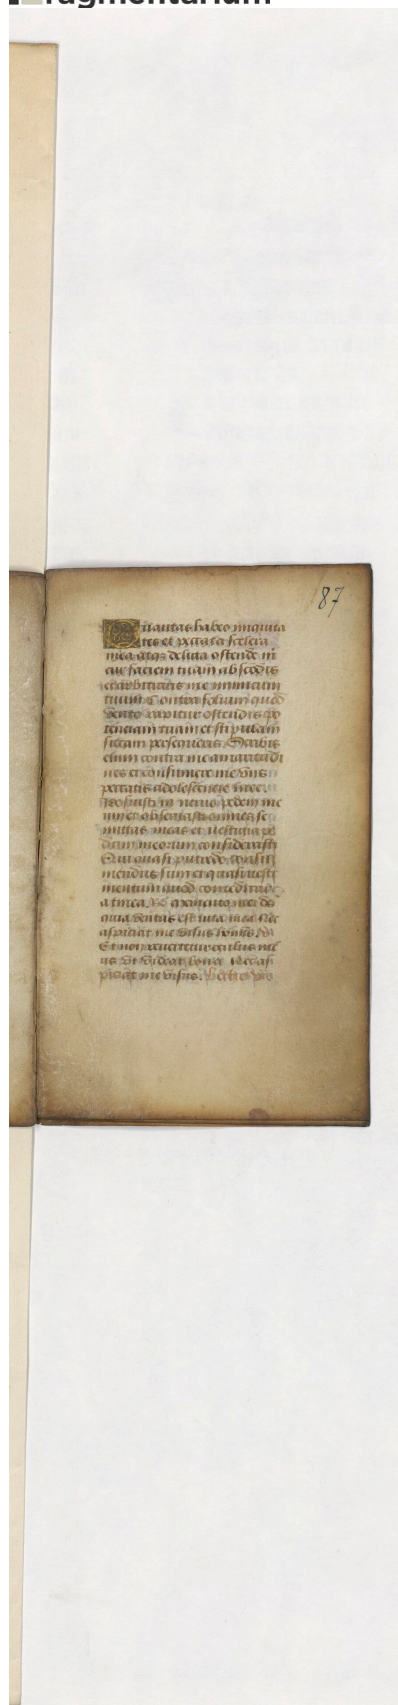 ragmentarium
87
Quantas habeo iniquita
tes et peccata scelera
mea atqz delicta ostende m̄
cur faciem tuam abscōdis
et arbitraris me inimicum
tuum Contra folium quod
vento rapitur ostendis po
tenciam tuam et stipulam
siccam persequeris Scribis
enim contra me amaritudi
nes et consumere me vis
peccatis adolescencie mee.
Posuisti in neruo pedem me
um et obseruasti omnes se
mittas meas et uestigia pe
dum meorum considerasti
Qui quasi putredo
mendus sum et quasi vesti
mentum quod comeditur
a tinea. memento mei deꝰ
quia ventus est vita mea Nec
aspiciat me visus
Et non reuertetur oculus me
us vt videat bona Nec as
piciat me visus.